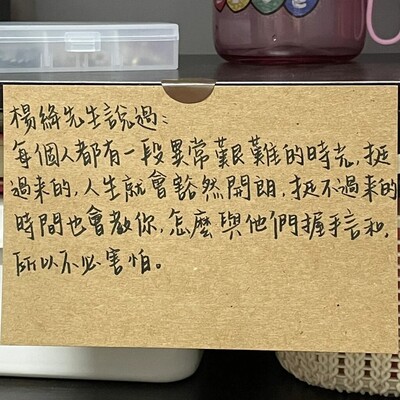 楊絳先生說過：
每個人都有一段異常艱難的時光，挺
過來的，人生就會豁然開朗，挺不過來的
時間也會教你，怎麼與他們握手言和，
所以不必害怕。